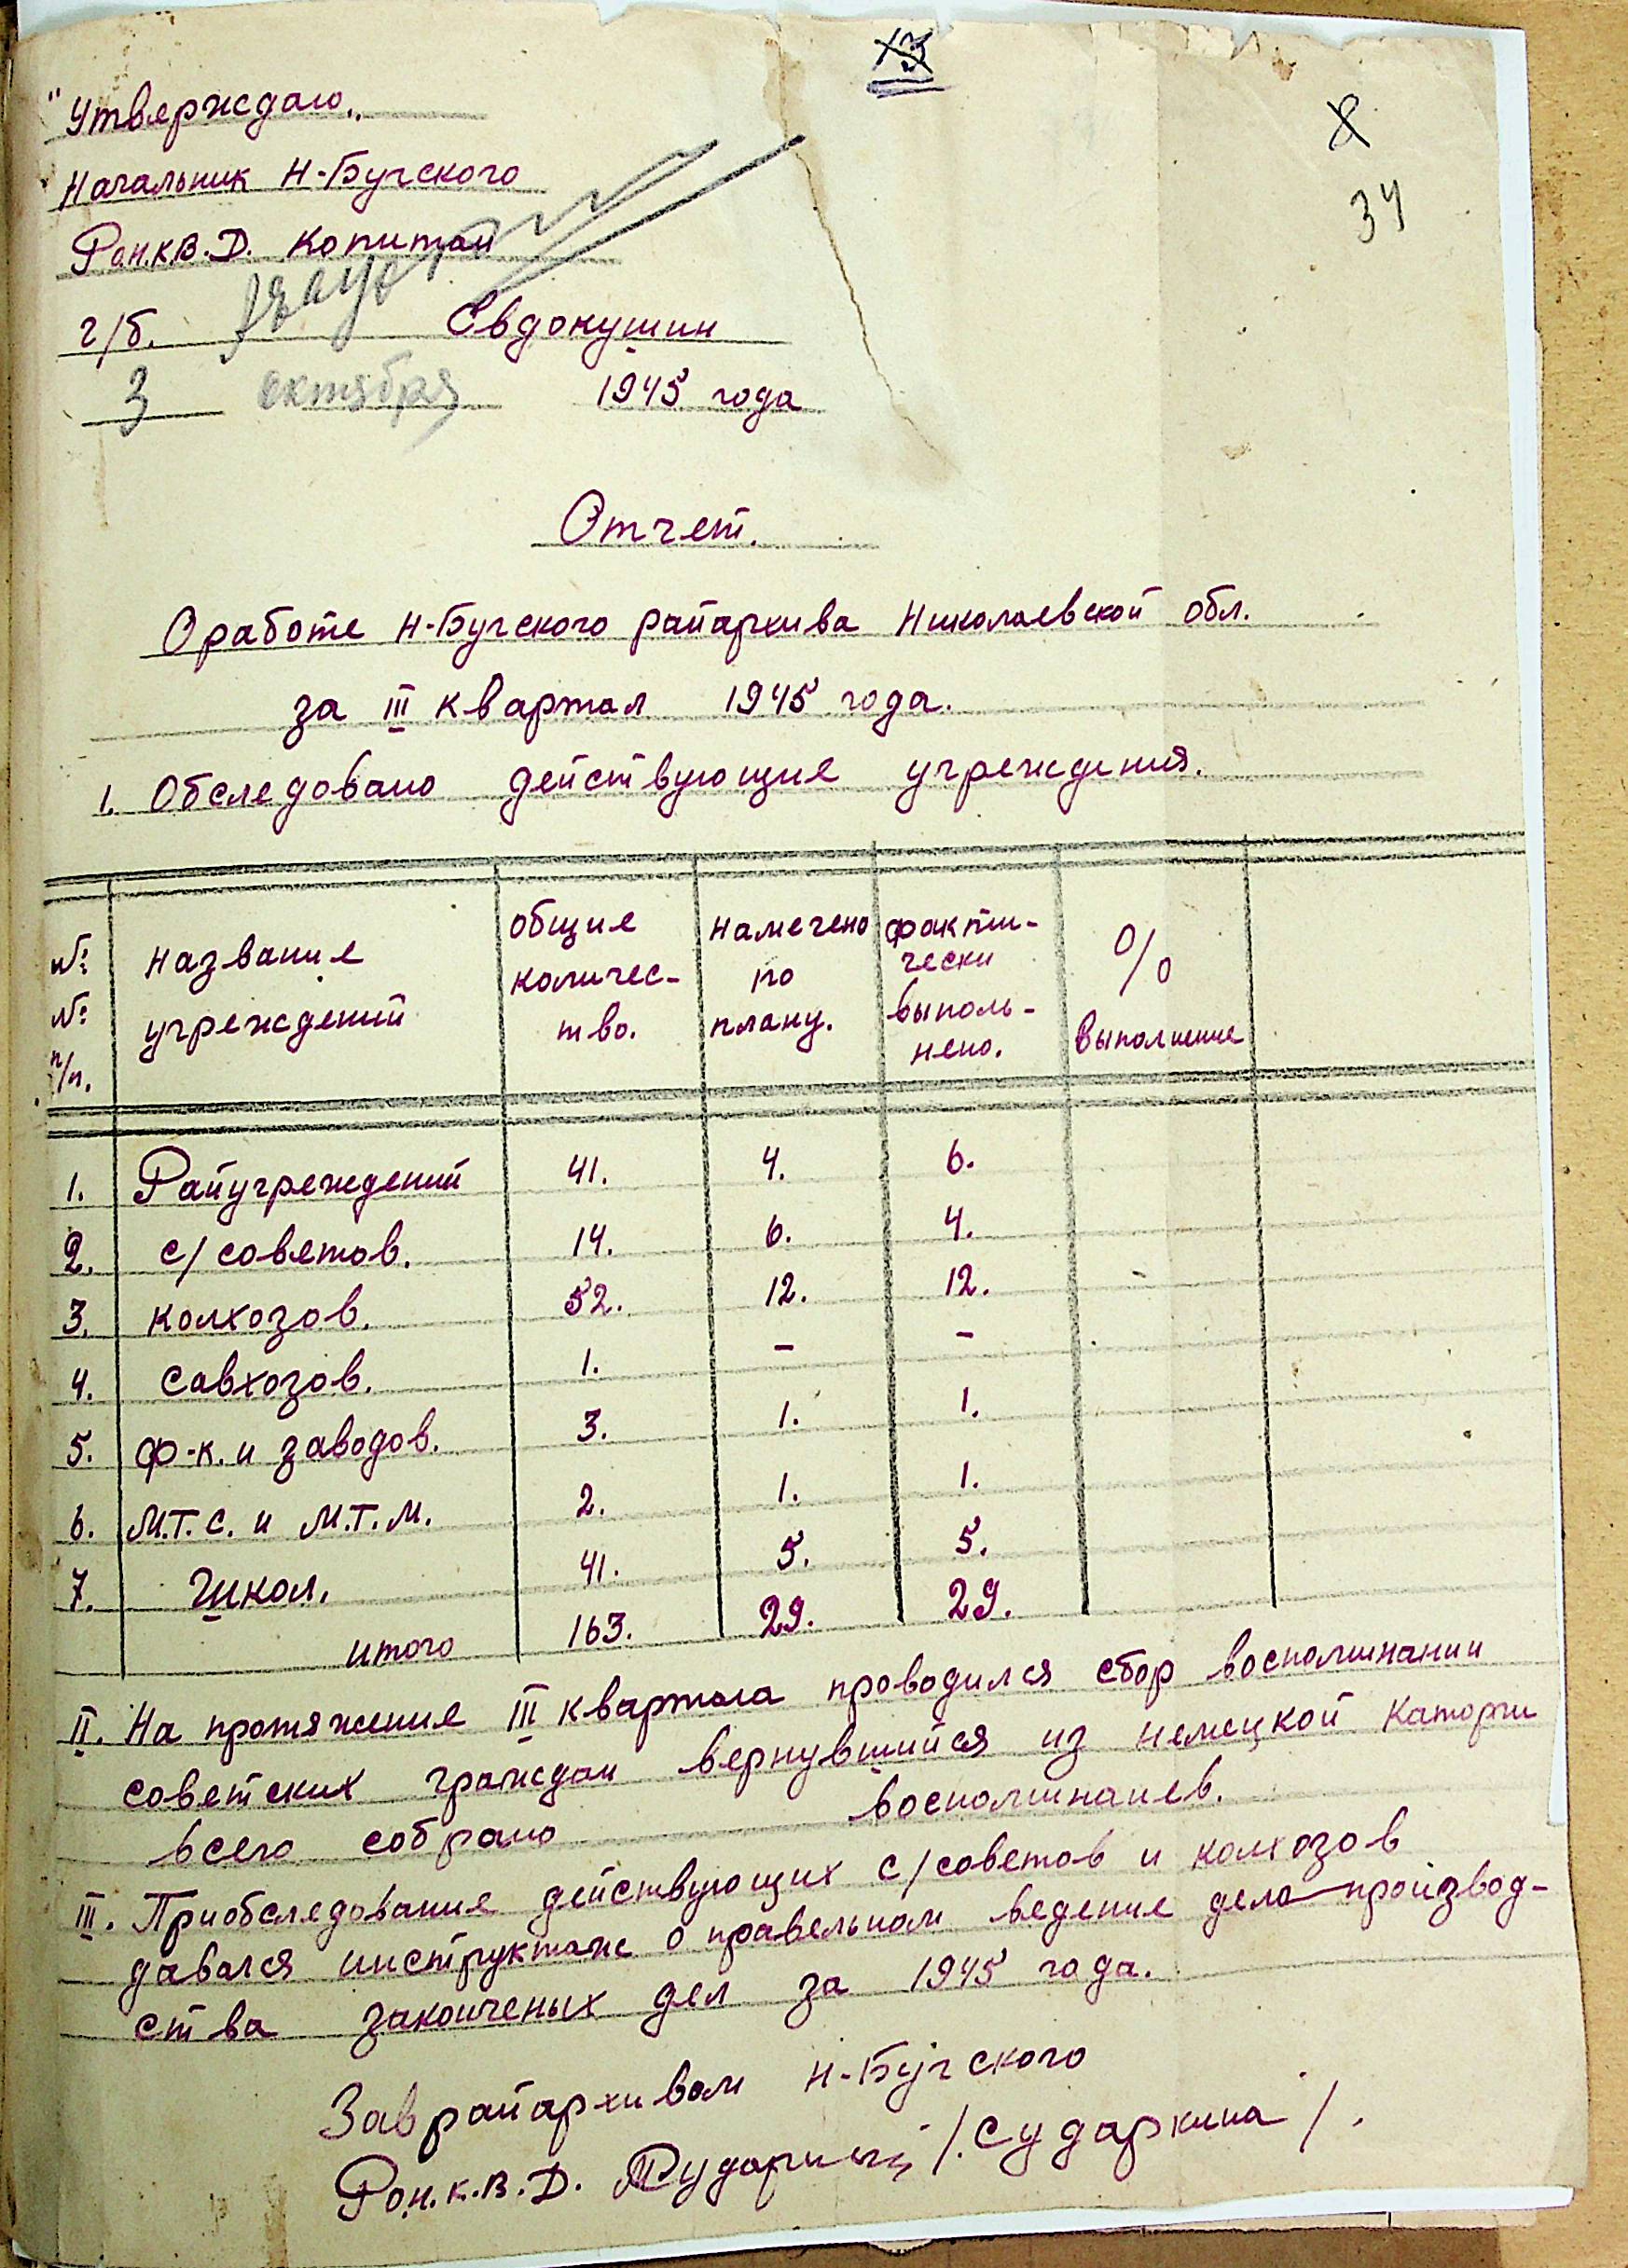 13
8
34
"Утверждаю"
Начальник Н-Бугского
Ро.Н.К.В.Д. Капитан
г/б. Евдокушин
3 октября 1945 года
Отчет.
О работе Н-Бугского райархива Николаевской обл.
за III квартал 1945 года.
1. Обследовано действующие учреждения.
№ № п/п. | название учреждений | общие количес-тво. | намечено по плану. | факти-чески выполь-нено. | % выполнение
1. Райучреждений 41. 4. 6.
2. с/советов. 14. 6. 4.
3. колхозов. 52. 12. 12.
4. савхозов. 1. - -
5. ф-к. и заводов. 3. 1. 1.
6. М.Т.С. и М.Т.М. 2. 1. 1.
7. школ. 41. 5. 5.
итого 163. 29. 29.
II. На протяжение III квартала проводился сбор воспоминании
советских граждан вернувшийся из немецкой каторги
всего собрано воспоминанев.
III. Приобследование действующих с/советов и колхозов
давался инструктаж о правельном ведение дела-производ-
ства законченых дел за 1945 года.
Заврайархивом Н-Бугского
Ро.Н.К.В.Д. /Сударкина/.